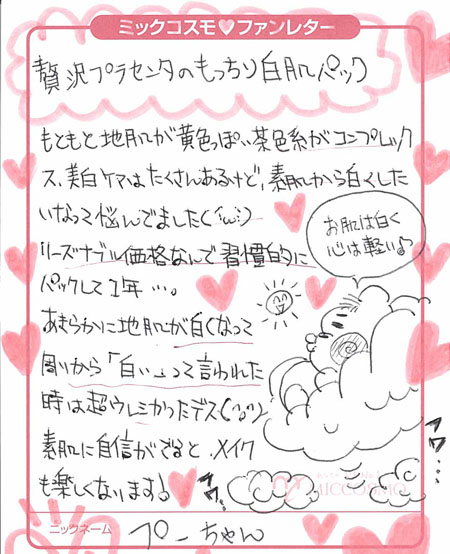 ミックコスモ♥ファンレター
贅沢プラセンタのもっちり白肌パック
もともと地肌が黄色っぽい茶色系がコンプレック
ス、美白ケアはたくさんあるけど、素肌から白くした
いなって悩んでました(´;ω;`)
リーズナブル価格なんで習慣的に
パックして1年…。
あきらかに地肌が白くなって
周りから「白い」って言われた
時は超ウレシかったデス(^o^)
素肌に自信がでると、メイク
も楽しくなります!
お肌は白く
心は軽い♪
フワ…
フワ…
MICCOSMO
ニックネーム
ぷーちゃん